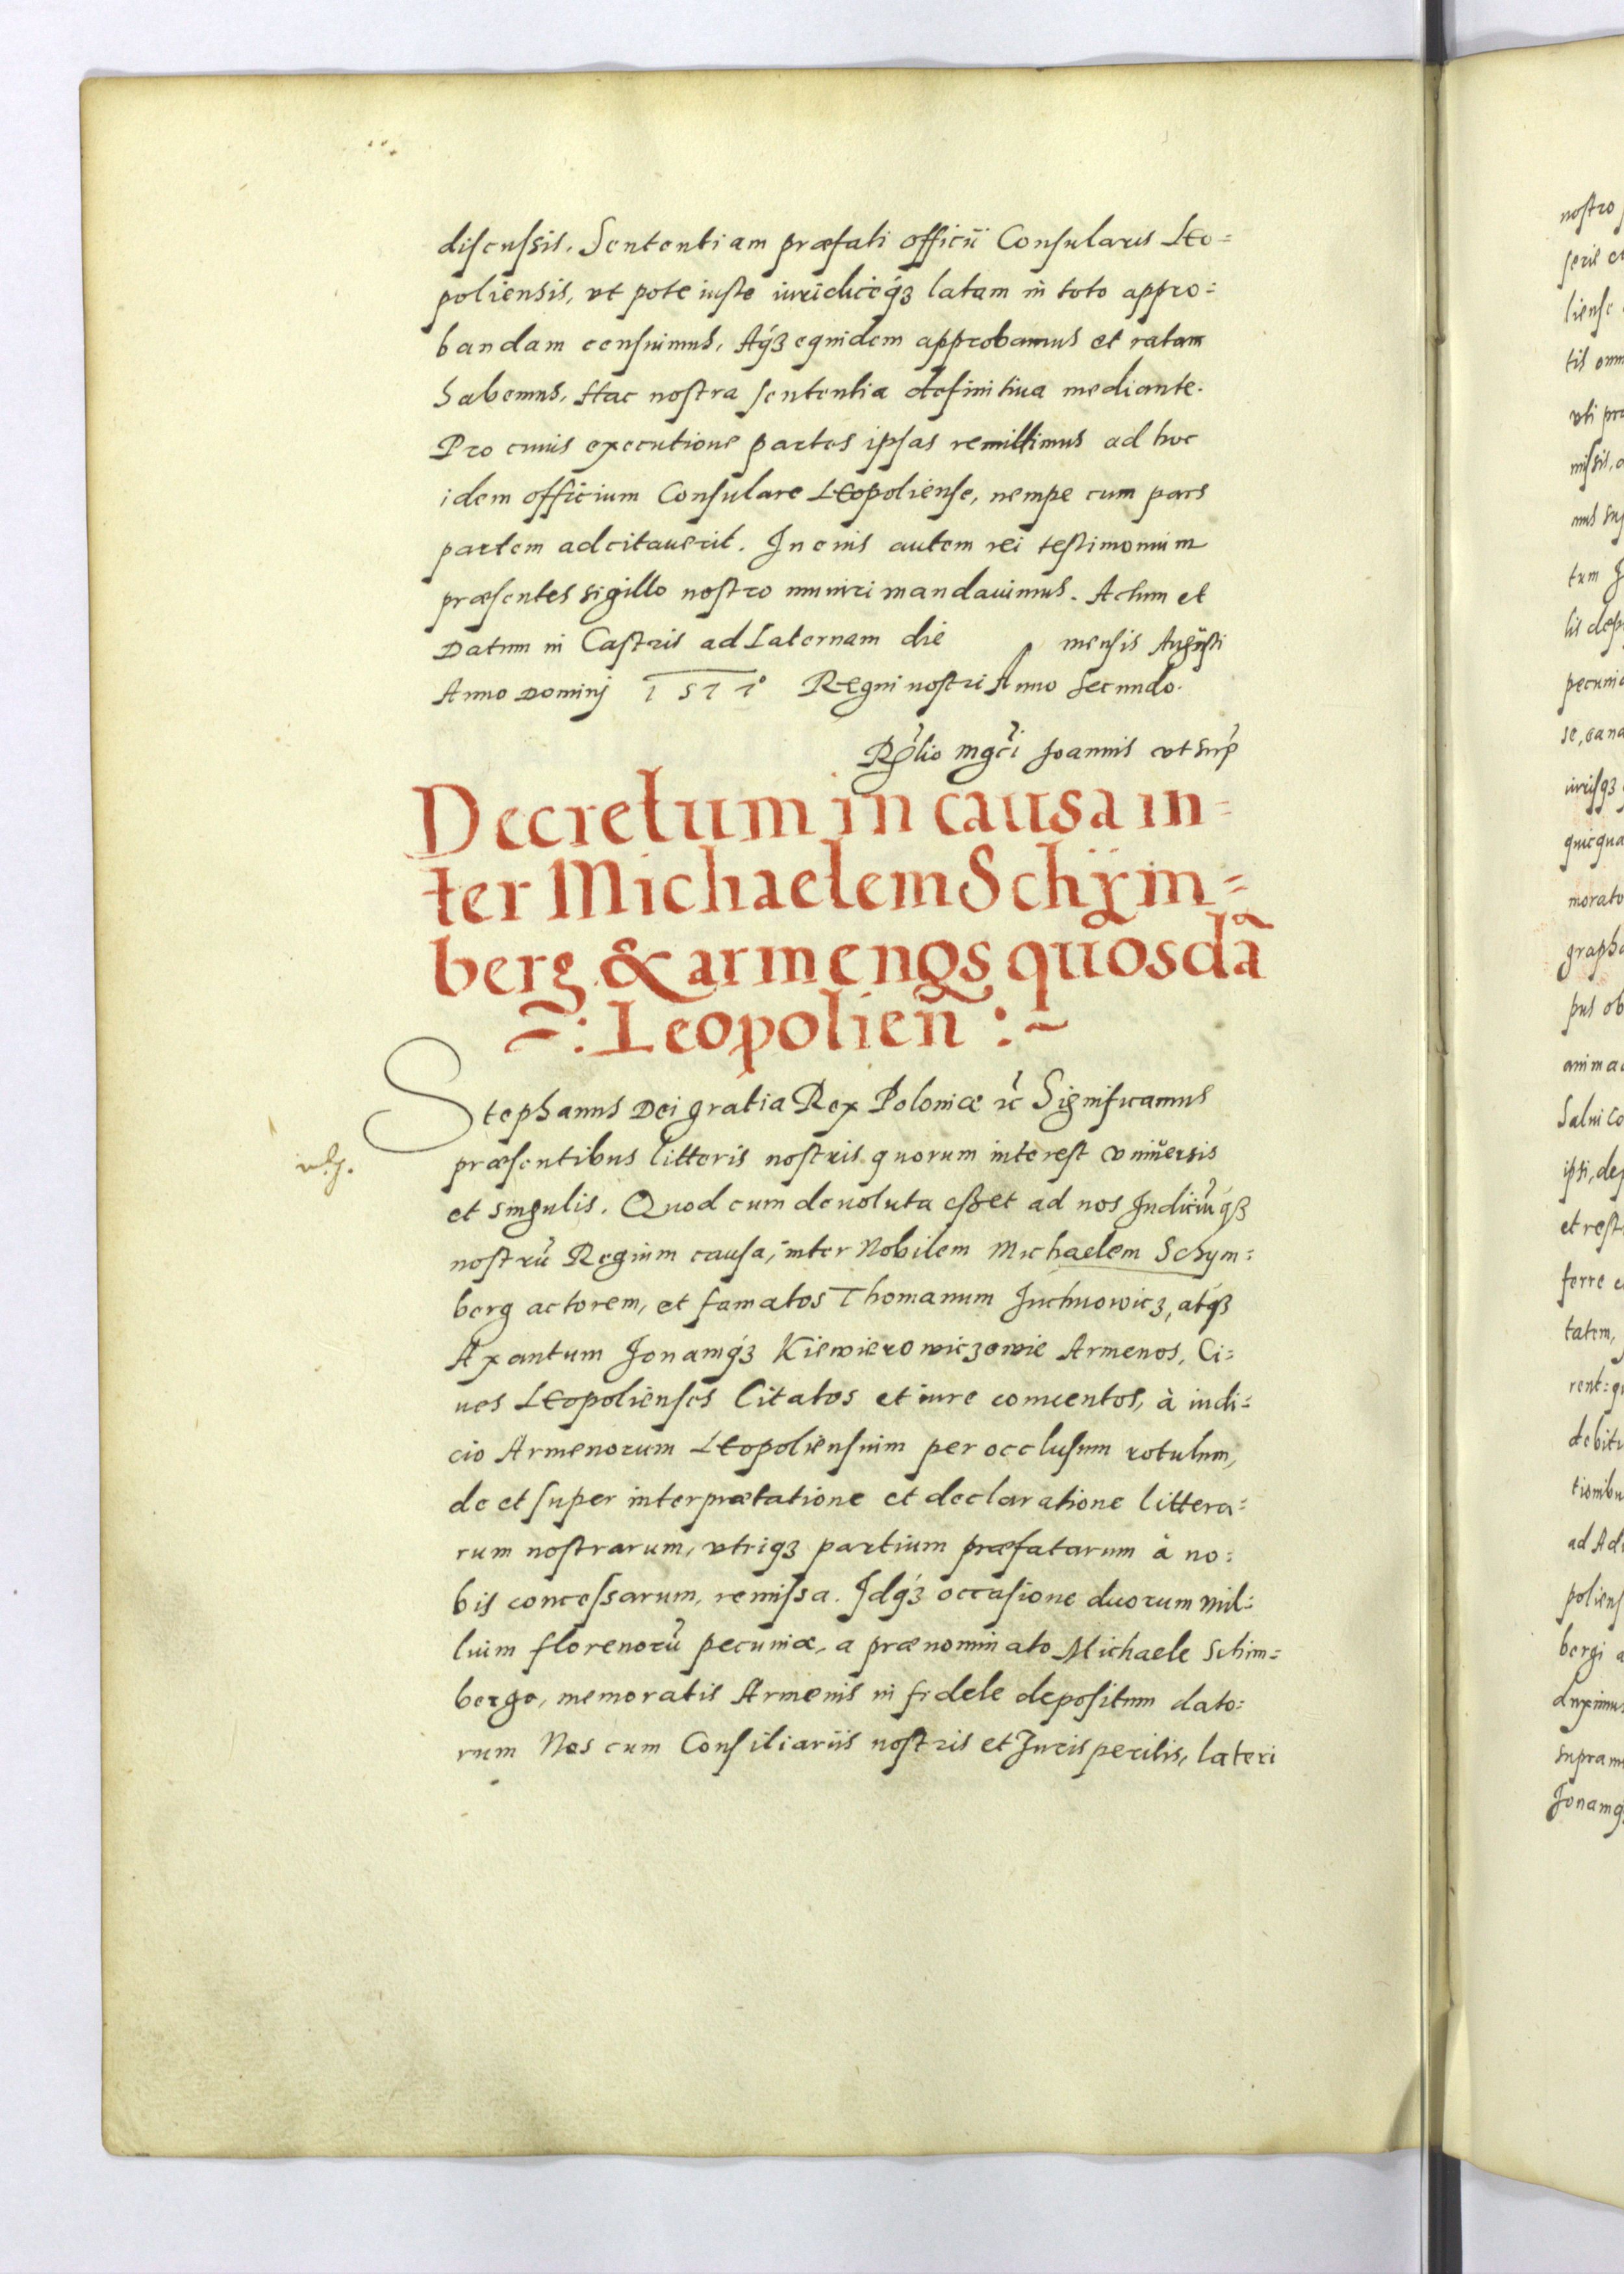 discussis. Sententiam præfati officii Consularis Leo=
poliensis, vt pote iuste iuridiceqꝫ latam in toto appro=
bandam censuimus, Atqꝫ equidem approbamus et ratam
habemus, Hac nostra sententia definitiua mediante.
Pro cuius executione partes ipsas remittimus ad hoc
idem officium Consulare Leopoliense, nempe cum pars
partem adcitauerit. In cuius autem rei testimonium
præsentes sigillo nostro muniri mandauimus. Actum et
Datum in Castris ad Laternam die mensis Augusti
Anno Dominj 1577° Regni nostri Anno Secundo.
Rel̃lio mgc̃i Joannis vt sup̃
Decretum in causa in=
ter Michaelem Schÿm=
berg & armenos quosdã
~: Leopolien̄ :~
Stephanus Dei gratia Rex Poloniæ ꝛc̃ Significamus
præsentibus litteris nostris quorum interest vniuersis
et singulis. Quod cum deuoluta esset ad nos Iudiciũqꝫ
nostrũ Regium causa, inter Nobilem Michaelem Schym=
berg actorem, et famatos Thomanum Juchnowicz, atqꝫ
Axantum Jonamqꝫ Kiewierowiczowie Armenos, Ci=
ues Leopolienses Citatos et iure conuentos, à iudi=
cio Armenorum Leopoliensium per occlusum rotulum,
de et super interprætatione et declaratione littera=
rum nostrarum, vtriqꝫ partium præfatarum à no=
bis concessarum, remissa. Idqꝫ occasione duorum mil=
lium florenorũ pecuniæ, a prænominato Michaele Schim=
bergo, memoratis Armenis in fidele depositum dato=
rum Nos cum Consiliariis nostris et Iurisperitis, lateri